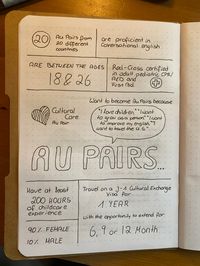 20 Au Pairs from
20 different
countries
are proficient in
conversational english
ARE BETWEEN THE AGES
18 & 26
Red-Cross certified
in adult pediatric CPR/
AED and
First Aid
Cultural
Care
Au Pair
Want to become Au Pairs because
"I love children" "I want
to grow as a person" "I want
to improve my english" "I
want to travel the U.S."
AU PAIRS...
Have at least
200 HOURS
of childcare
experience
90% FEMALE
10% MALE
Travel on a J-1 Cultural Exchange
Visa for
1 YEAR
with the opportunity to extend for
6, 9 or 12 Month